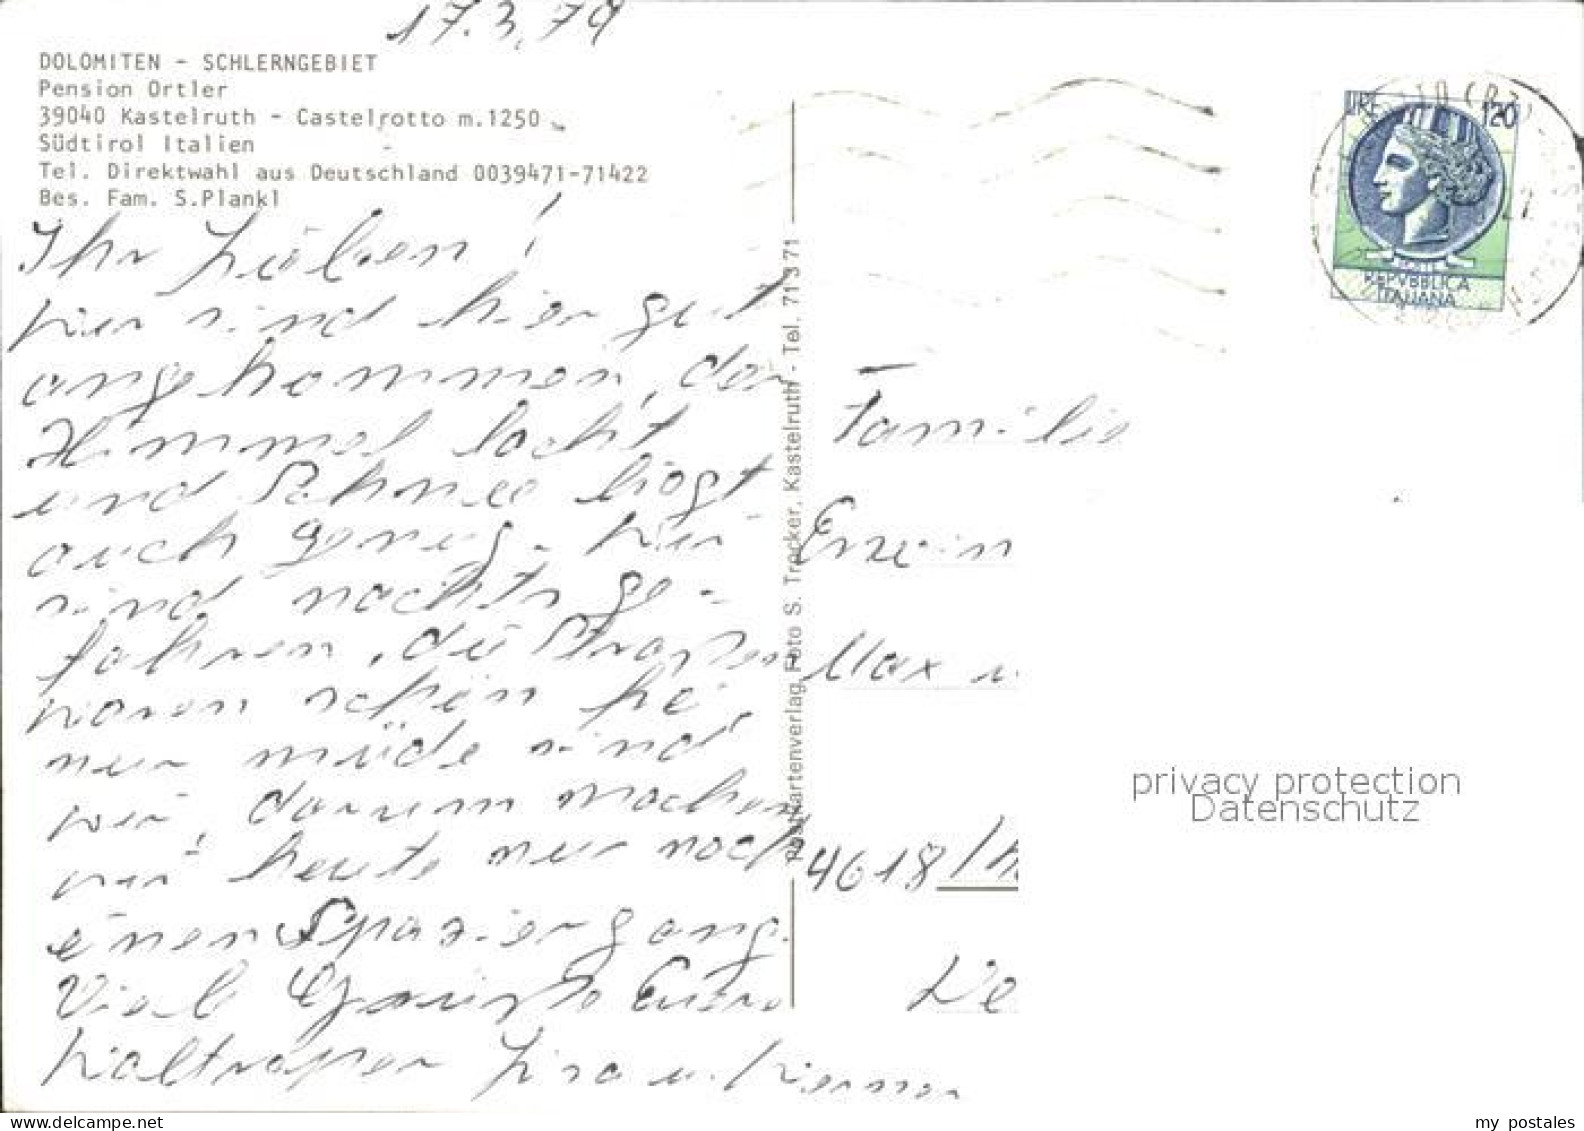 17.3.79
DOLOMITEN - SCHLERNGEBIET
Pension Ortler
39040 Kastelruth - Castelrotto m.1250
Südtirol Italien
Tel. Direktwahl aus Deutschland 0039471-71422
Bes. Fam. S.Plankl
Ihr Lieben!
Wir sind hier gut
angekommen, der
Himmel lacht
und Schnee liegt
auch genug. Wir
sind nachts ge-
fahren, die Straßen
waren schön
nur müde sind
wir, darum machen
wir heute nur noch
einen Spaziergang.
Viele Grüße Eure
Waltroper u. Werner
Postkartenverlag, Foto S. Trocker, Kastelruth - Tel. 71371
LIRE 120
POSTE
REPVBBLICA
ITALIANA
Familie
Erwin
Max u.
4618
privacy protection
Datenschutz
my postales
www.delcampe.net